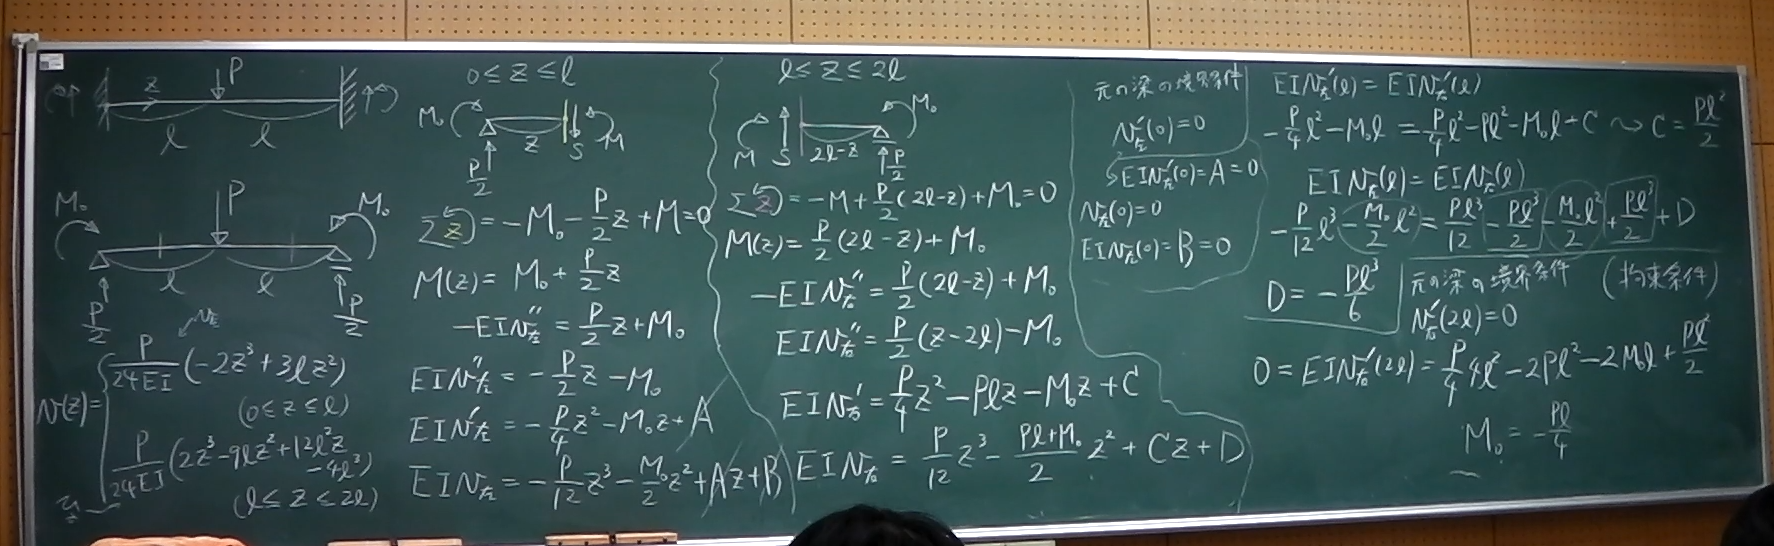 z
P
l
l
M₀
P
M₀
l
l
P/2
P/2
v左
v(z)=
P/24EI (-2z³+3lz²)
(0≤z≤l)
P/24EI (2z³-9lz²+12l²z
-4l³)
(l≤z≤2l)
0≤z≤l
M₀
z
S
M
P/2
Σz)=-M₀-P/2 z+M=0
M(z)=M₀+P/2 z
-EIv左''=P/2 z+M₀
EIv左''=-P/2 z-M₀
EIv左'=-P/4 z²-M₀z+A
EIv左=-P/12 z³-M₀/2 z²+Az+B
l≤z≤2l
M₀
M
S
2l-z
P/2
Σz)=-M+P/2(2l-z)+M₀=0
M(z)=P/2(2l-z)+M₀
-EIv右''=P/2(2l-z)+M₀
EIv右''=P/2(z-2l)-M₀
EIv右'=P/4 z²-Plz-M₀z+C
EIv右=P/12 z³-(Pl+M₀)/2 z²+Cz+D
元の梁の境界条件
v左'(0)=0
EIv左'(0)=A=0
v左(0)=0
EIv左(0)=B=0
EIv左'(l)=EIv右'(l)
-P/4 l²-M₀l=P/4 l²-Pl²-M₀l+C ⤳ C=Pl²/2
EIv左(l)=EIv右(l)
-P/12 l³-M₀/2 l²=Pl³/12-Pl³/2-M₀l²/2+Pl³/2+D
D=-Pl³/6
元の梁の境界条件 (拘束条件)
v右'(2l)=0
0=EIv右'(2l)=P/4 4l²-2Pl²-2M₀l+Pl²/2
M₀=-Pl/4